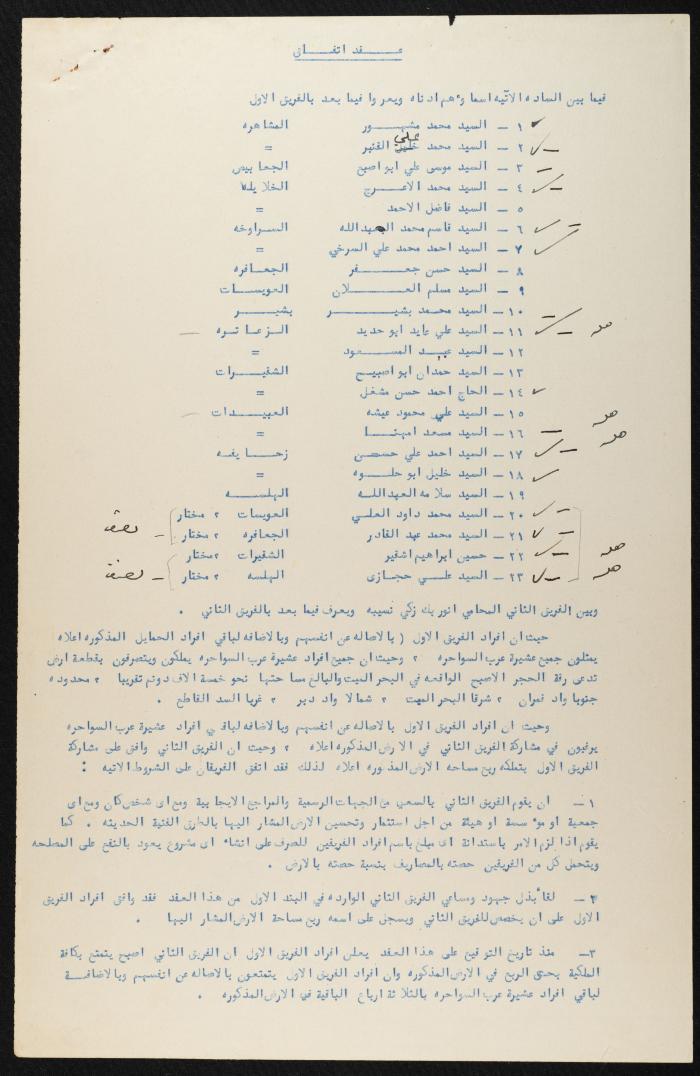 عقد اتفاق
فيما بين الساده الآتيه اسماؤهم ادناه ويعرفوا فيما بعد بالفريق الاول
١ – السيد محمد مشهور المشاهره
٢ – السيد محمد خليل علي القنبر =
٣ – السيد موسى علي ابو اصبع الجعابيص
٤ – السيد محمد الاعرج الخلايله
٥ – السيد فاضل الاحمد =
٦ – السيد قاسم محمد العبدالله السراوخه
٧ – السيد احمد محمد علي السرخي =
٨ – السيد حسن جعفر الجعافره
٩ – السيد مسلم العلان العويسات
١٠ – السيد محمد بشير بشير
١١ – السيد علي عايد ابو حديد الزعاتره
١٢ – السيد عبد المسعود =
١٣ – السيد حمدان ابو اصبيح الشقيرات
١٤ – الحاج احمد حسن مشعل =
١٥ – السيد علي محمود عيشه العبيدات
١٦ – السيد مسعد امهنا =
١٧ – السيد احمد علي حسن زحايفه
١٨ – السيد خليل ابو حلوه =
١٩ – السيد سلامه العبدالله الهلسه
٢٠ – السيد محمد داود العلي العويسات ٢ مختار
٢١ – السيد محمد عبد القادر الجعافره ٢ مختار
٢٢ – حسين ابراهيم اشقير الشقيرات ٢ مختار
٢٣ – السيد علي حجازى الهلسه ٢ مختار
وبين الفريق الثاني المحامي انور بك زكي نسيبه ويعرف فيما بعد بالفريق الثاني .
حيث ان افراد الفريق الاول ( بالاصاله عن انفسهم وبالاضافه لباقي افراد الحمايل المذكوره اعلاه
يمثلون جميع عشيرة عرب السواحره ٢ وحيث ان جميع افراد عشيرة عرب السواحره يملكون ويتصرفون بقطعة ارض
تدعى رقة الحجر الاصبح الواقعه في البحر الميت والبالغ مساحتها نحو خمسة الاف دونم تقريبا ٢ محدوده
جنوبا واد قمران ٢ شرقا البحر الميت ٢ شمالا واد دبر ٢ غربا السد القاطع .
وحيث ان افراد الفريق الاول بالاصاله عن انفسهم وبالاضافه لباقي افراد عشيرة عرب السواحره
يرغبون في مشاركة الفريق الثاني في الارض المذكوره اعلاه ٢ وحيث ان الفريق الثاني وافق على مشاركة
الفريق الاول بتملكه ربع مساحه الارض المذكوره اعلاه لذلك فقد اتفق الفريقان على الشروط الاتيه :
١ – ان يقوم الفريق الثاني بالسعي مع الجهات الرسمية والمراجع الايجابية ومع اى شخص كان ومع اى
جمعية او مؤسسة او هيئة من اجل استثمار وتحسين الارض المشار اليها بالطرق الفنية الحديثه . كما
يقوم اذا لزم الامر باستدانة اى مبلغ باسم افراد الفريقين للصرف على انشاء اى مشروع يعود بالنفع على المصلحه
ويتحمل كل من الفريقين حصته بالمصاريف بنسبة حصته بالارض .
٢ – لقاء بذل جهود ومساعي الفريق الثاني الوارده في البند الاول من هذا العقد فقد وافق افراد الفريق
الاول على ان يخصص للفريق الثاني ويسجل على اسمه ربع مساحة الارض المشار اليها .
٣ – منذ تاريخ التوقيع على هذا العقد يعلن افراد الفريق الاول ان الفريق الثاني اصبح يتمتع بكافة
الملكية بحق الربع في الارض المذكوره وان افراد الفريق الاول يتمتعون بالاصاله عن انفسهم وبالاضافة
لباقي افراد عشيرة عرب السواحره بالثلاثة ارباع الباقية في الارض المذكوره .